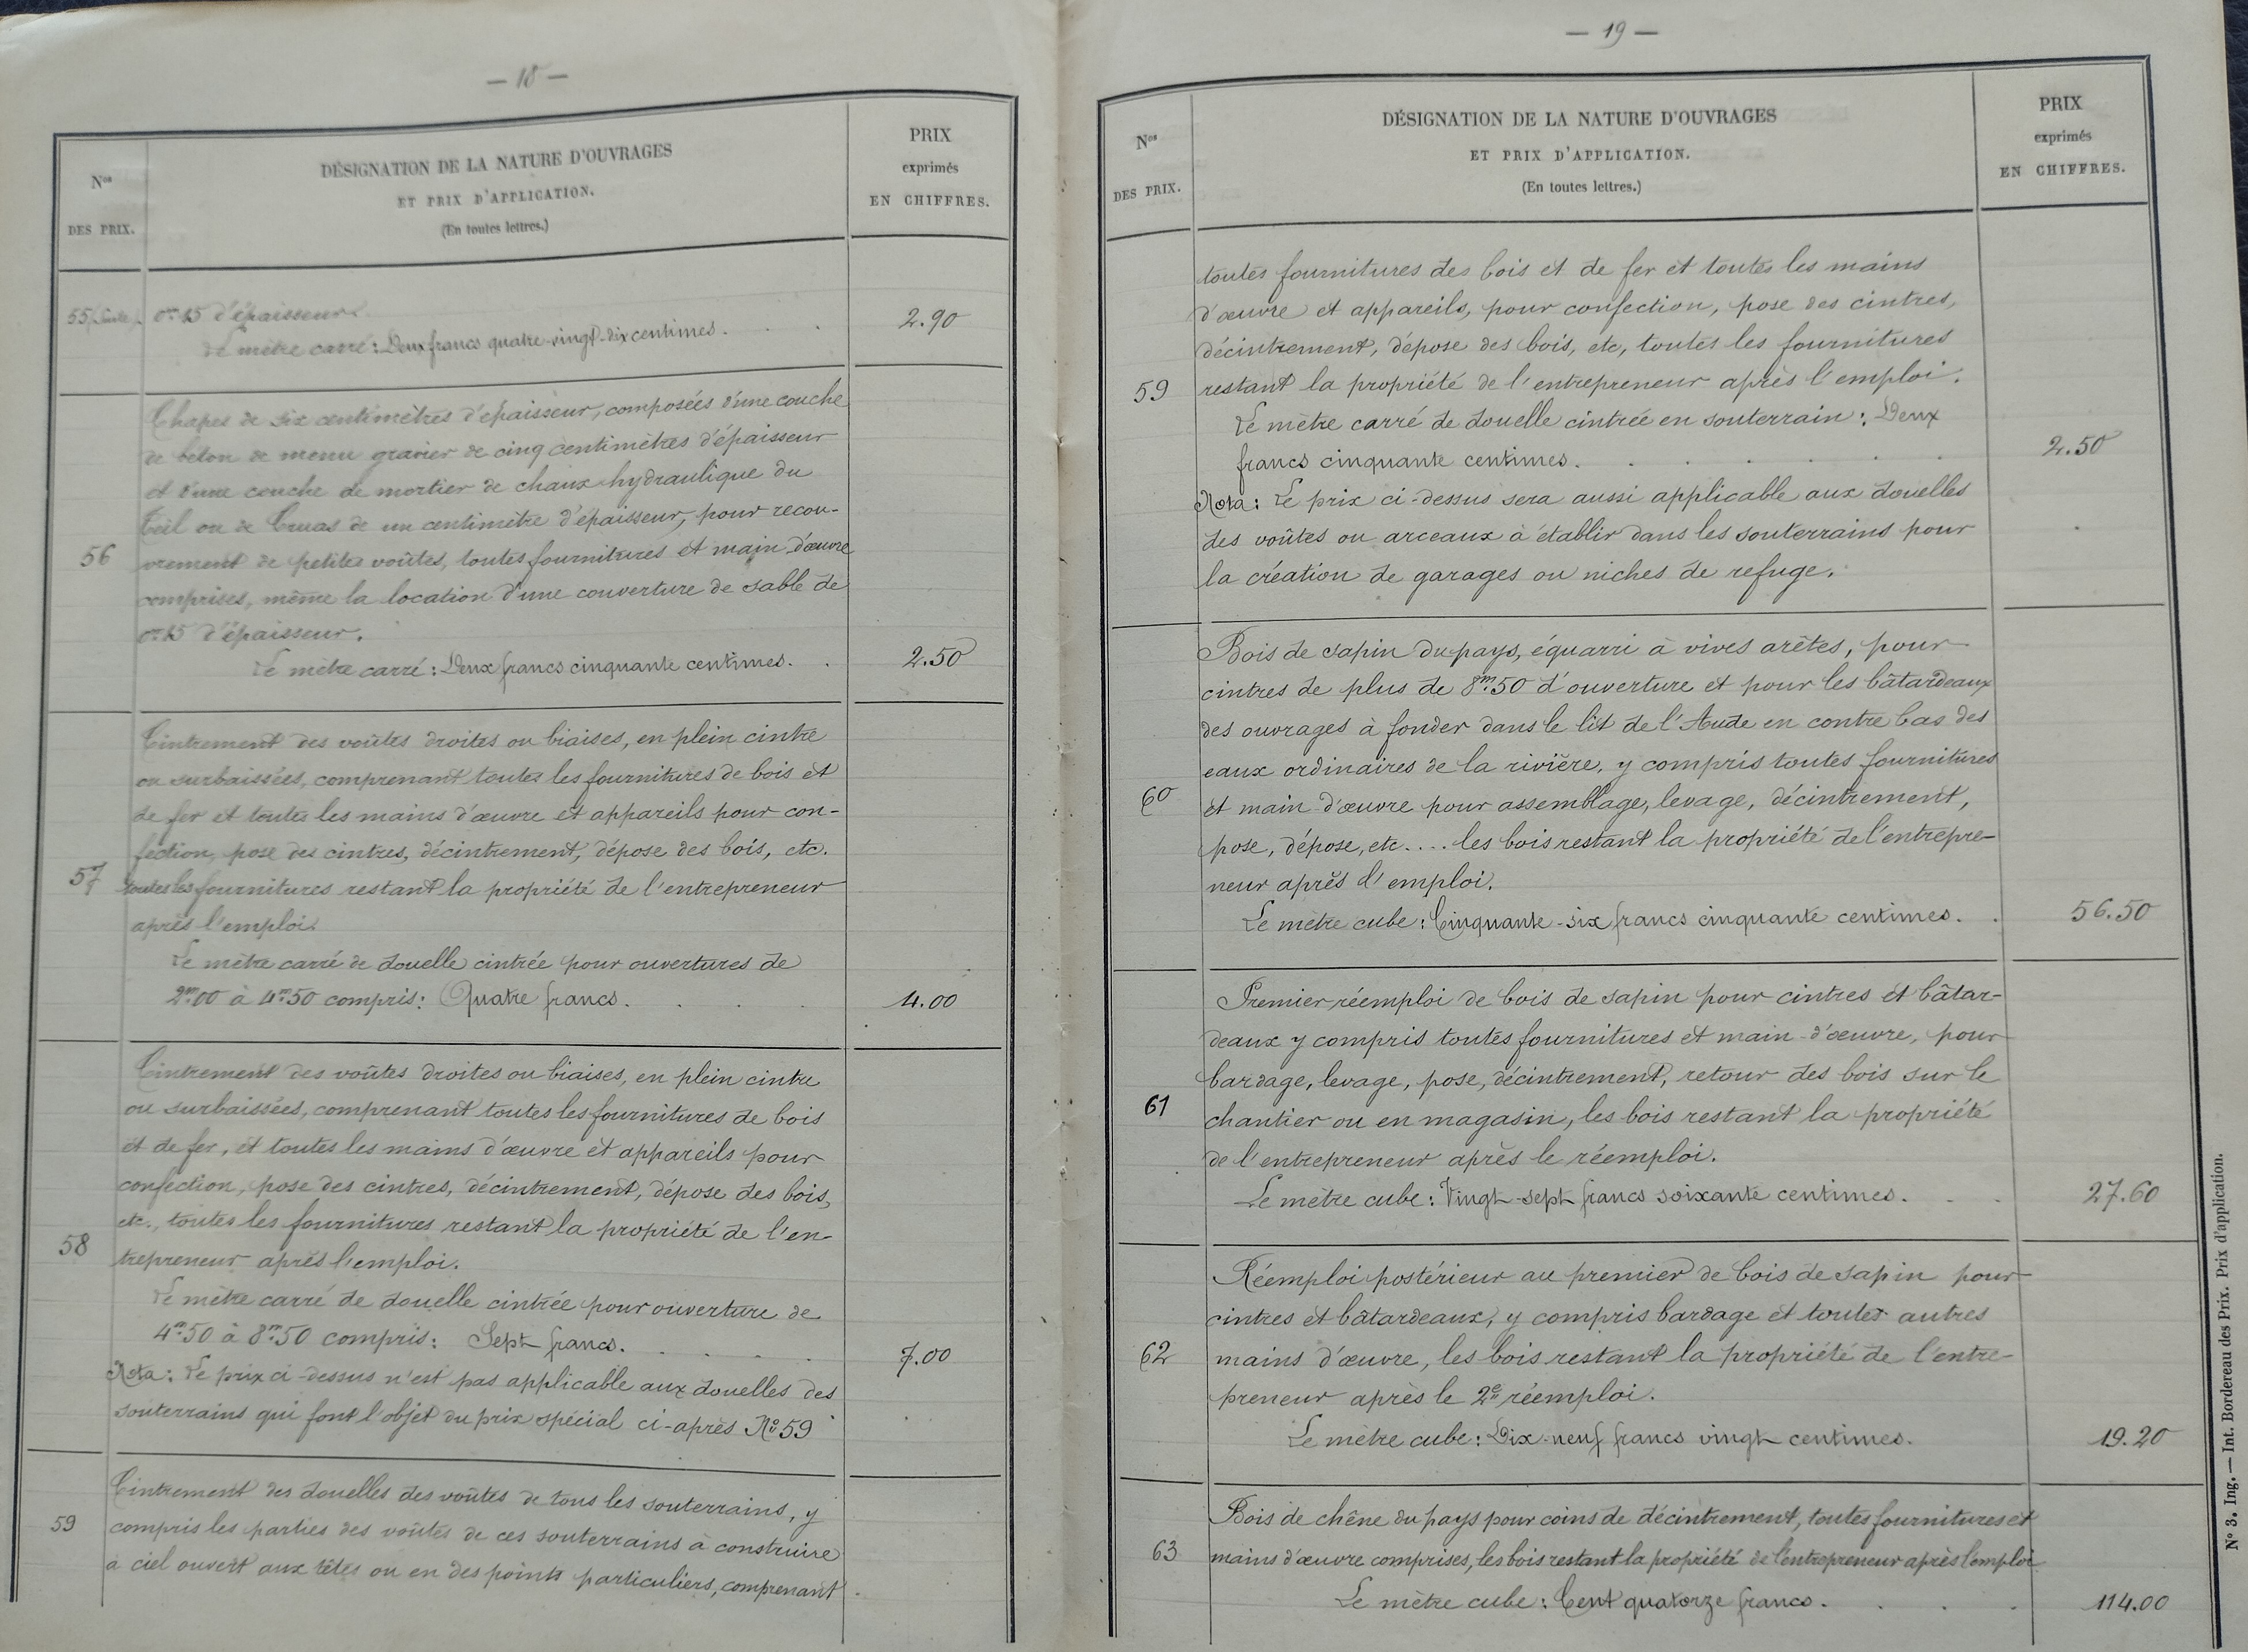 — 18 —
Nos
DES PRIX.
DÉSIGNATION DE LA NATURE D'OUVRAGES
ET PRIX D'APPLICATION.
(En toutes lettres.)
PRIX
exprimés
EN CHIFFRES.
55 (Suite). 0m15 d'épaisseur.
Le mètre carré : Deux francs quatre-vingt-dix centimes. 2.90
Chapes de six centimètres d'épaisseur, composées d'une couche
de béton de menu gravier de cinq centimètres d'épaisseur
et d'une couche de mortier de chaux hydraulique du
Teil ou de Cruas de un centimètre d'épaisseur, pour recou-
56 vrement de petites voûtes, toutes fournitures et main d'œuvre
comprises, même la location d'une couverture de sable de
0m15 d'épaisseur.
Le mètre carré : Deux francs cinquante centimes. 2.50
Cintrement des voûtes droites ou biaises, en plein cintre
ou surbaissées, comprenant toutes les fournitures de bois et
de fer et toutes les mains d'œuvre et appareils pour con-
fection, pose des cintres, décintrement, dépose des bois, etc.
57 toutes les fournitures restant la propriété de l'entrepreneur
après l'emploi.
Le mètre carré de douelle cintrée pour ouvertures de
2m00 à 4m50 compris : Quatre francs. 4.00
Cintrement des voûtes droites ou biaises, en plein cintre
ou surbaissées, comprenant toutes les fournitures de bois
et de fer, et toutes les mains d'œuvre et appareils pour
confection, pose des cintres, décintrement, dépose des bois,
etc., toutes les fournitures restant la propriété de l'en-
58 trepreneur après l'emploi.
Le mètre carré de douelle cintrée pour ouverture de
4m50 à 8m50 compris : Sept francs. 7.00
Nota : Le prix ci-dessus n'est pas applicable aux douelles des
souterrains qui font l'objet du prix spécial ci-après No 59
Cintrement des douelles des voûtes de tous les souterrains, y
59 compris les parties des voûtes de ces souterrains à construire
à ciel ouvert aux têtes ou en des points particuliers, comprenant
— 19 —
Nos
DES PRIX.
DÉSIGNATION DE LA NATURE D'OUVRAGES
ET PRIX D'APPLICATION.
(En toutes lettres.)
PRIX
exprimés
EN CHIFFRES.
toutes fournitures des bois et de fer et toutes les mains
d'œuvre et appareils, pour confection, pose des cintres,
décintrement, dépose des bois, etc, toutes les fournitures
59 restant la propriété de l'entrepreneur après l'emploi.
Le mètre carré de douelle cintrée en souterrain : Deux
francs cinquante centimes. 2.50
Nota : Le prix ci-dessus sera aussi applicable aux douelles
des voûtes ou arceaux à établir dans les souterrains pour
la création de garages ou niches de refuge.
Bois de sapin du pays, équarri à vives arêtes, pour
cintres de plus de 8m50 d'ouverture et pour les bâtardeaux
des ouvrages à fonder dans le lit de l'Aude en contre bas des
eaux ordinaires de la rivière, y compris toutes fournitures
60 et main d'œuvre pour assemblage, levage, décintrement,
pose, dépose, etc.... les bois restant la propriété de l'entrepre-
neur après l'emploi.
Le mètre cube : Cinquante-six francs cinquante centimes. 56.50
Premier réemploi de bois de sapin pour cintres et bâtar-
deaux y compris toutes fournitures et main-d'œuvre, pour
bardage, levage, pose, décintrement, retour des bois sur le
61 chantier ou en magasin, les bois restant la propriété
de l'entrepreneur après le réemploi.
Le mètre cube : Vingt-sept francs soixante centimes. 27.60
Réemploi postérieur au premier de bois de sapin pour
cintres et bâtardeaux, y compris bardage et toutes autres
62 mains d'œuvre, les bois restant la propriété de l'entre-
preneur après le 2e réemploi.
Le mètre cube : Dix-neuf francs vingt centimes. 19.20
Bois de chêne du pays pour coins de décintrement, toutes fournitures et
63 mains d'œuvre comprises, les bois restant la propriété de l'entrepreneur après l'emploi
Le mètre cube : Cent quatorze francs. 114.00
No 3. Ing. — Int. Bordereau des Prix. Prix d'application.